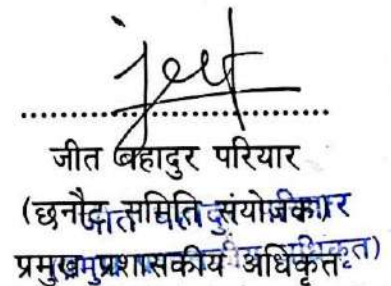 jeet
....................
जीत बहादुर परियार
(छनौट समिति संयोजक)
प्रमुख प्रशासकीय अधिकृत